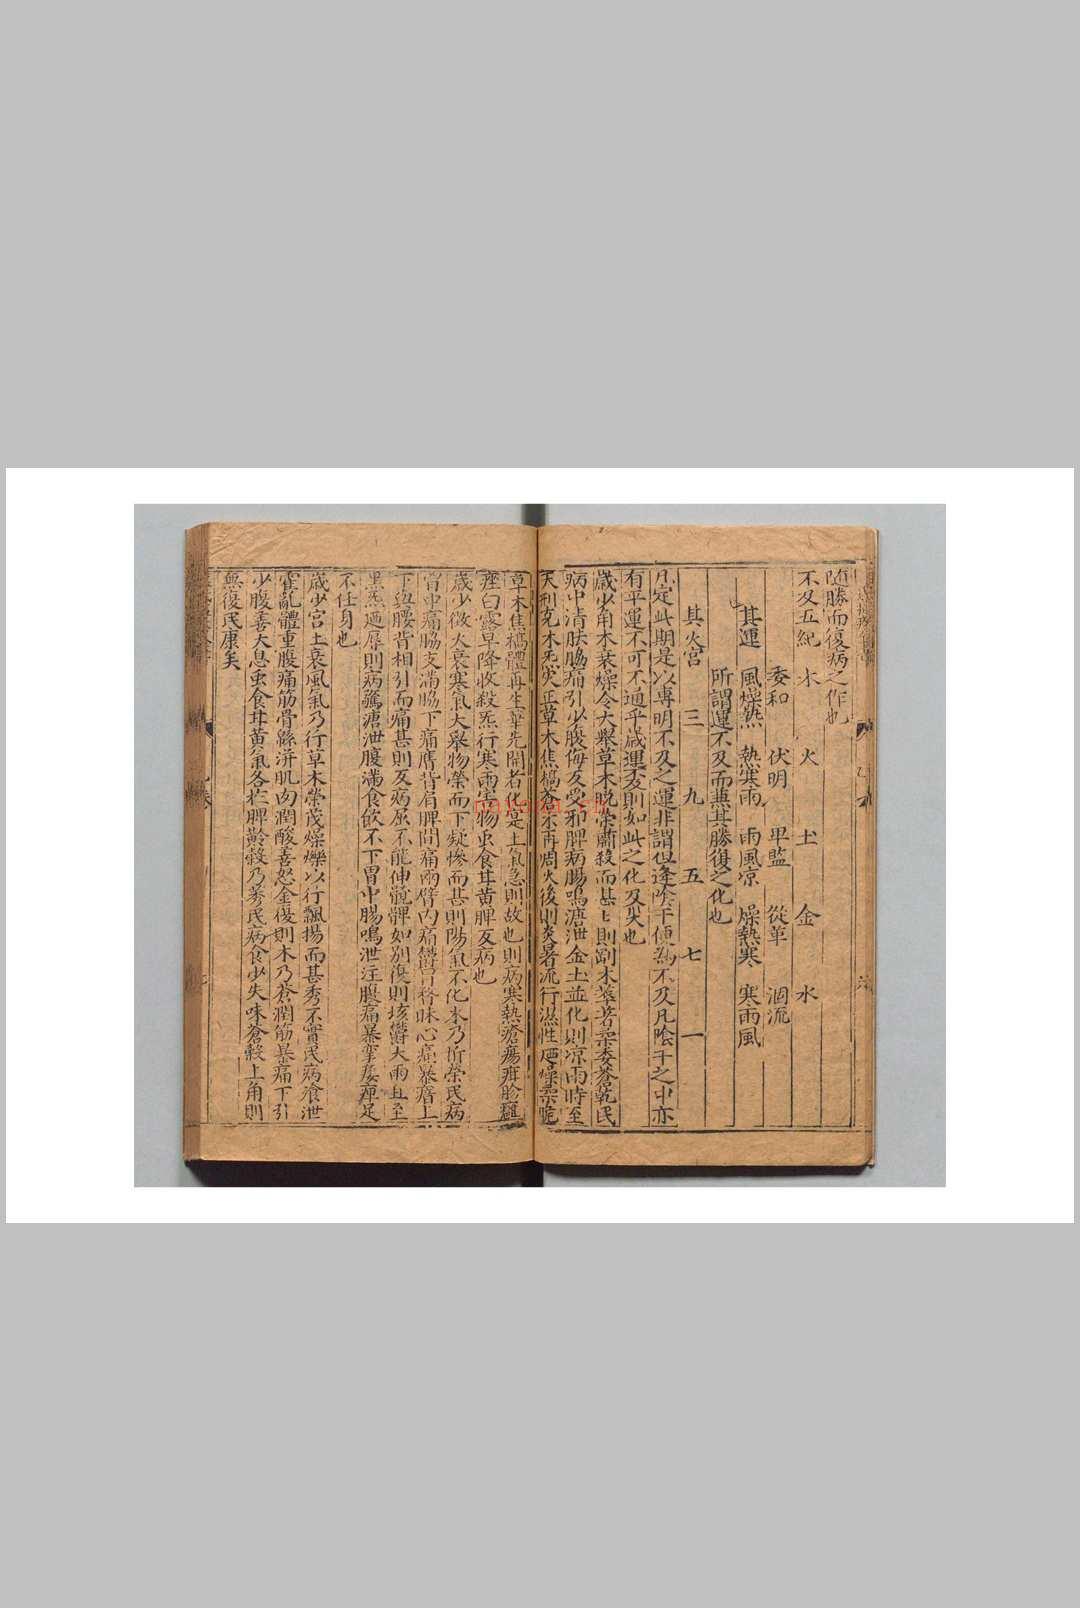 随勝而復病之作也
不及五紀 木 火 土 金 水
委和 伏明 卑監 從革 涸流
其運 風燥熱 熱寒雨 雨風凉 燥熱寒 寒雨風
所謂運不及而無其勝復之化也
其灾宮 三 九 五 七 一
凡定此期是以專明不及之運非謂但逢陰干便為不及凡陰干之中亦
有平運不可不通乎歲運不及則如此之化及灾也
歲少角木衰燥令大舉草木晚榮肅殺而甚
則剛木
民
病中清胠脇痛引少腹侮反受邪脾病腸鳴溏泄金土並化則凉雨時至
草木焦槁
火復則炎暑流行濕性
燥柔脆
草木焦槁體再生華先開者化是上氣急則
故也則病寒熱瘡瘍疿胗癰
痤白露早降收殺炁行寒雨害物虫食甘黃脾反病也
歲少徵火衰寒氣大舉物榮而下疑慘而甚則陽氣不化木乃折榮民病
胷中痛脇支滿脇下痛膺背肩脾間痛兩臂内痛鬱冒矇昧心痛暴瘖上
下與腰背相引而痛甚則反病屈不能伸髖髀如別復則埃鬱大雨且至
黑炁廼辱則病鶩溏泄腹滿食飲不下胃中腸鳴泄注腹痛暴攣痿痹足
不任身也
歲少宮土衰風氣乃行草木榮茂燥爍以行飄揚而甚秀不實民病飧泄
霍亂體重腹痛筋骨繇併肌肉潤酸善怒金復則木乃蒼潤筋暴痛下引
少腹善大息虫食甘黃氣各於脾黅穀乃萎民病食少失味蒼穀上角則
無復民康矣
nayona.cn